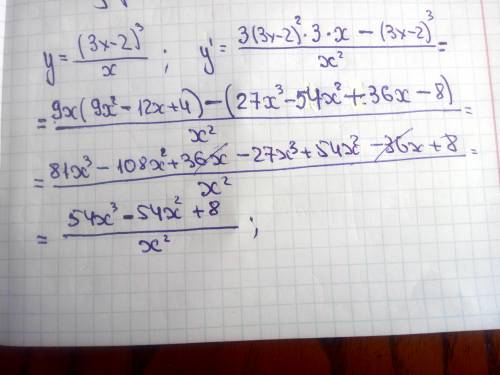 y = (3x-2)³/x ; y' = (3(3x-2)²·3·x - (3x-2)³)/x² =
= (9x(9x² - 12x + 4) - (27x³ - 54x² + 36x - 8))/x² =
= (81x³ - 108x² + 36x - 27x³ + 54x² - 36x + 8)/x² =
= (54x³ - 54x² + 8)/x² ;